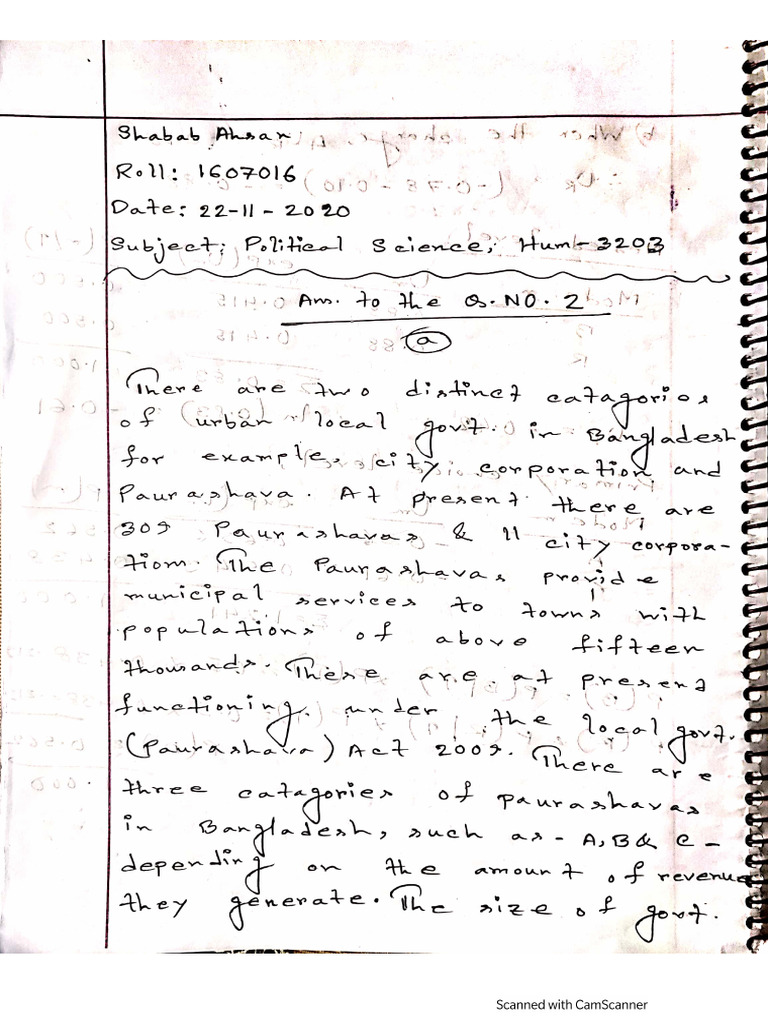 Shabab Ahsan
Roll: 1607016
Date: 22-11-2020
Subject: Political Science, Hum-3203
Ans. to the Q. NO. 2
(a)
There are two distinct catagories
of urban local govt. in Bangladesh
for example, city corporation and
Paurashava. At present there are
309 Paurashavas & 11 city corpora-
tion. The Paurashavas provide
municipal services to towns with
populations of above fifteen
thousands. These are at present
functioning under the local govt.
(Paurashava) Act 2009. There are
three catagories of paurashavas
in Bangladesh, such as - A, B & C -
depending on the amount of revenue
they generate. The size of govt.
Scanned with CamScanner